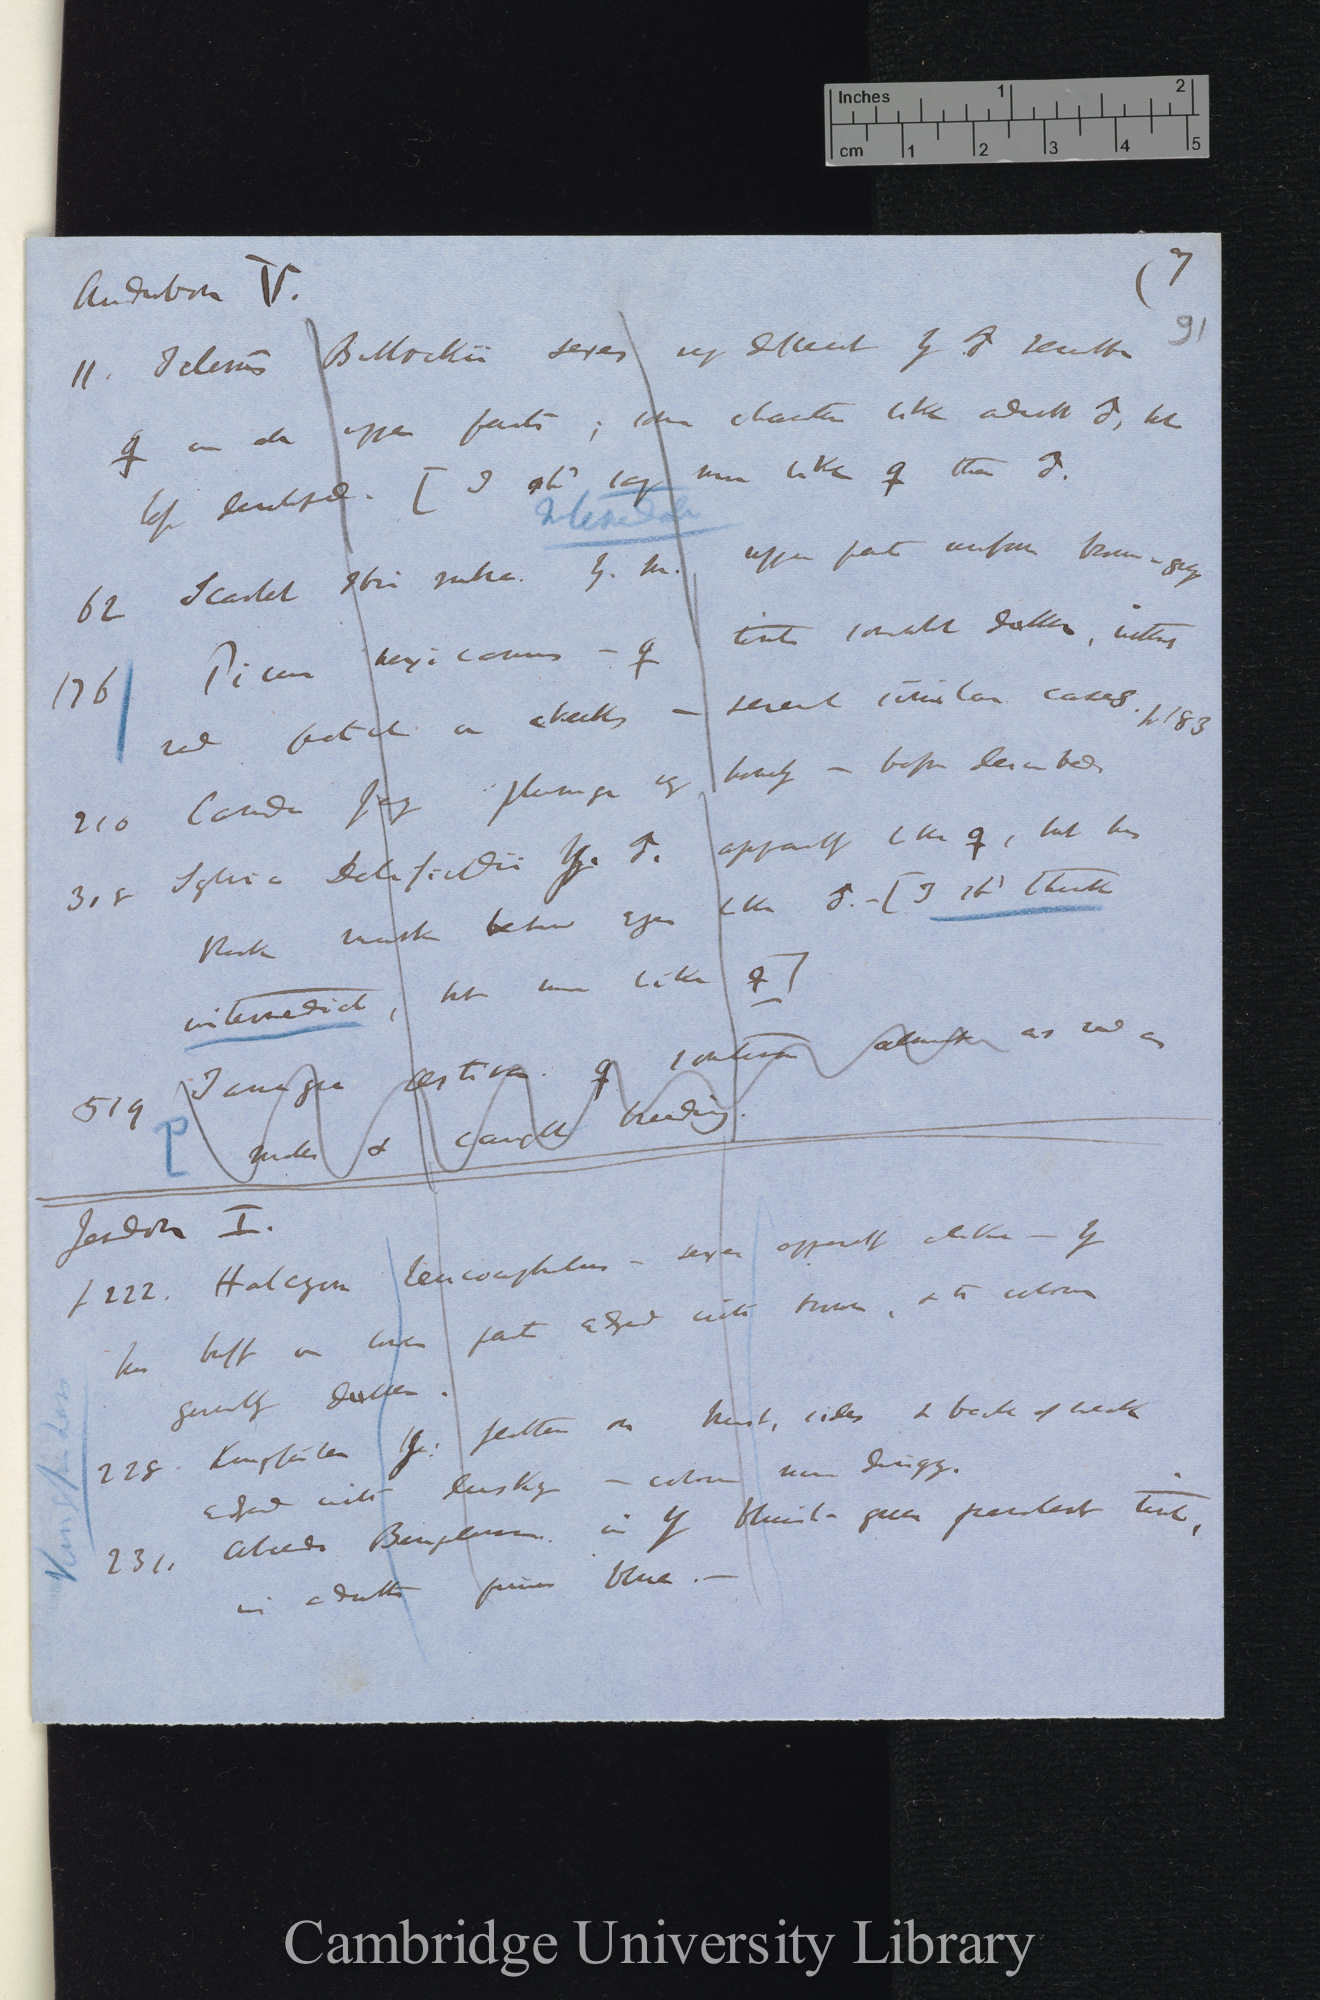 Inches 1 2
cm 1 2 3 4 5
Audubon V. (7
91
11. Icterus Bullockii sexes very different y ♂ resembles
♀ on upper parts; some characters like adult ♂, but
less developed. [I shd say more like ♀ than ♂.
Intermediate
62 Scarlet Ibis rubra. Y. M. upper parts uniform brown-grey
176 Picus mexicanus - ♀ tints somewhat duller, without
red patch on cheeks - several similar cases. p 183
210 Canada Jay plumage of young - before described
308 Sylvia Delafieldii Yg. ♂. apparently like ♀, but has
black mark below eyes like ♂. - [I shd think
intermediate, but more like ♀]
519 Tanagra aestiva. ♀ sometimes almost as red as
P males & caught breeding.
Jerdon I.
p 222. Halcyon leucocephalus - sexes apparently alike - Y
has buff on lower parts edged with brown, & its colours
generally duller.
228. Kingfisher Yg: feathers on breast, sides & back of neck
edged with dusky - colours more dingy.
Kingfishers
231. Alcedo Bengalensis. in Y bluish-green prevalent tint,
in adults purer blue. -
Cambridge University Library